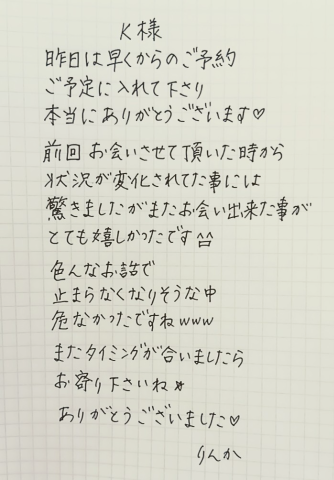 K様
昨日は早くからのご予約
ご予定に入れて下さり
本当にありがとうございます♡
前回お会いさせて頂いた時から
状況が変化されてた事には
驚きましたがまたお会い出来た事が
とても嬉しかったです^^
色んなお話で
止まらなくなりそうな中
危なかったですねwww
またタイミングが合いましたら
お寄り下さいね☆
ありがとうございました♡
りんか